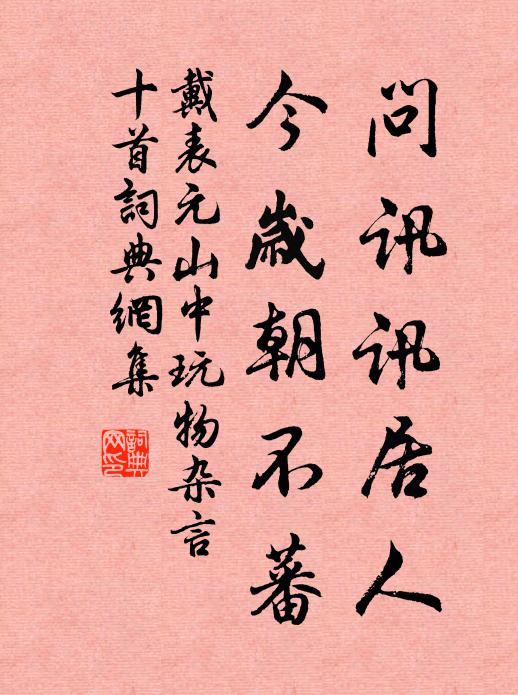 問訊訊居人
今歲朝不蕃
戴表元山中玩物杂言
十首詞典網集
詞典
网印